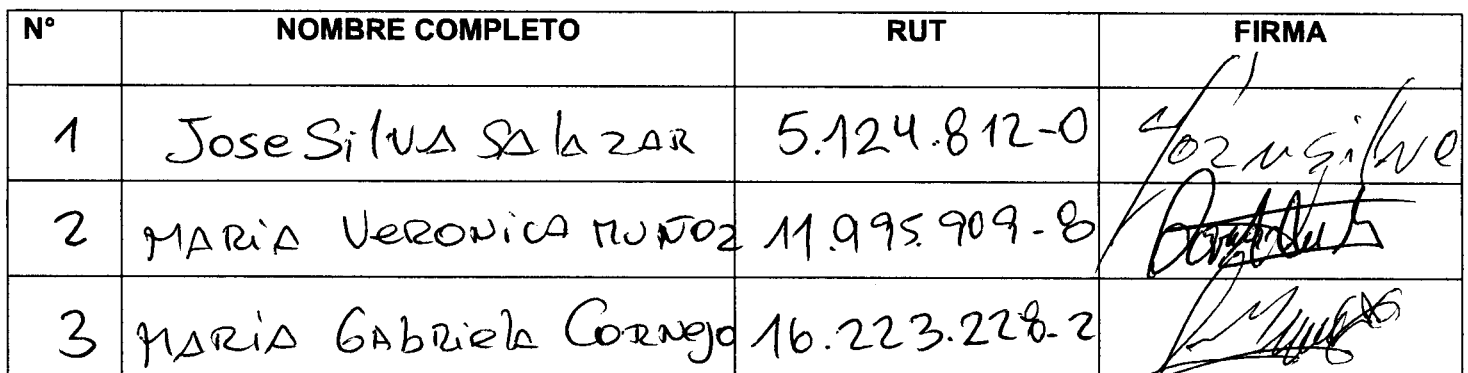 N° NOMBRE COMPLETO RUT FIRMA
1 Jose Silva Salazar 5.124.812-0
2 MARIA VERONICA MUÑOZ 11.995.909-8
3 MARIA GABRIELA CORNEJO 16.223.228-2